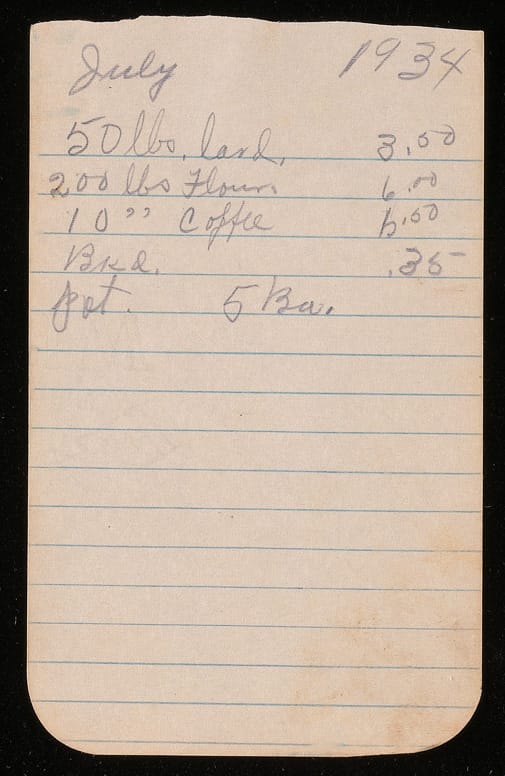 July 1934
50 lbs. lard. 3.50
200 lbs Flour. 6.00
10 " Coffee .50
Bkd. .35
Pot. 5 Bu.